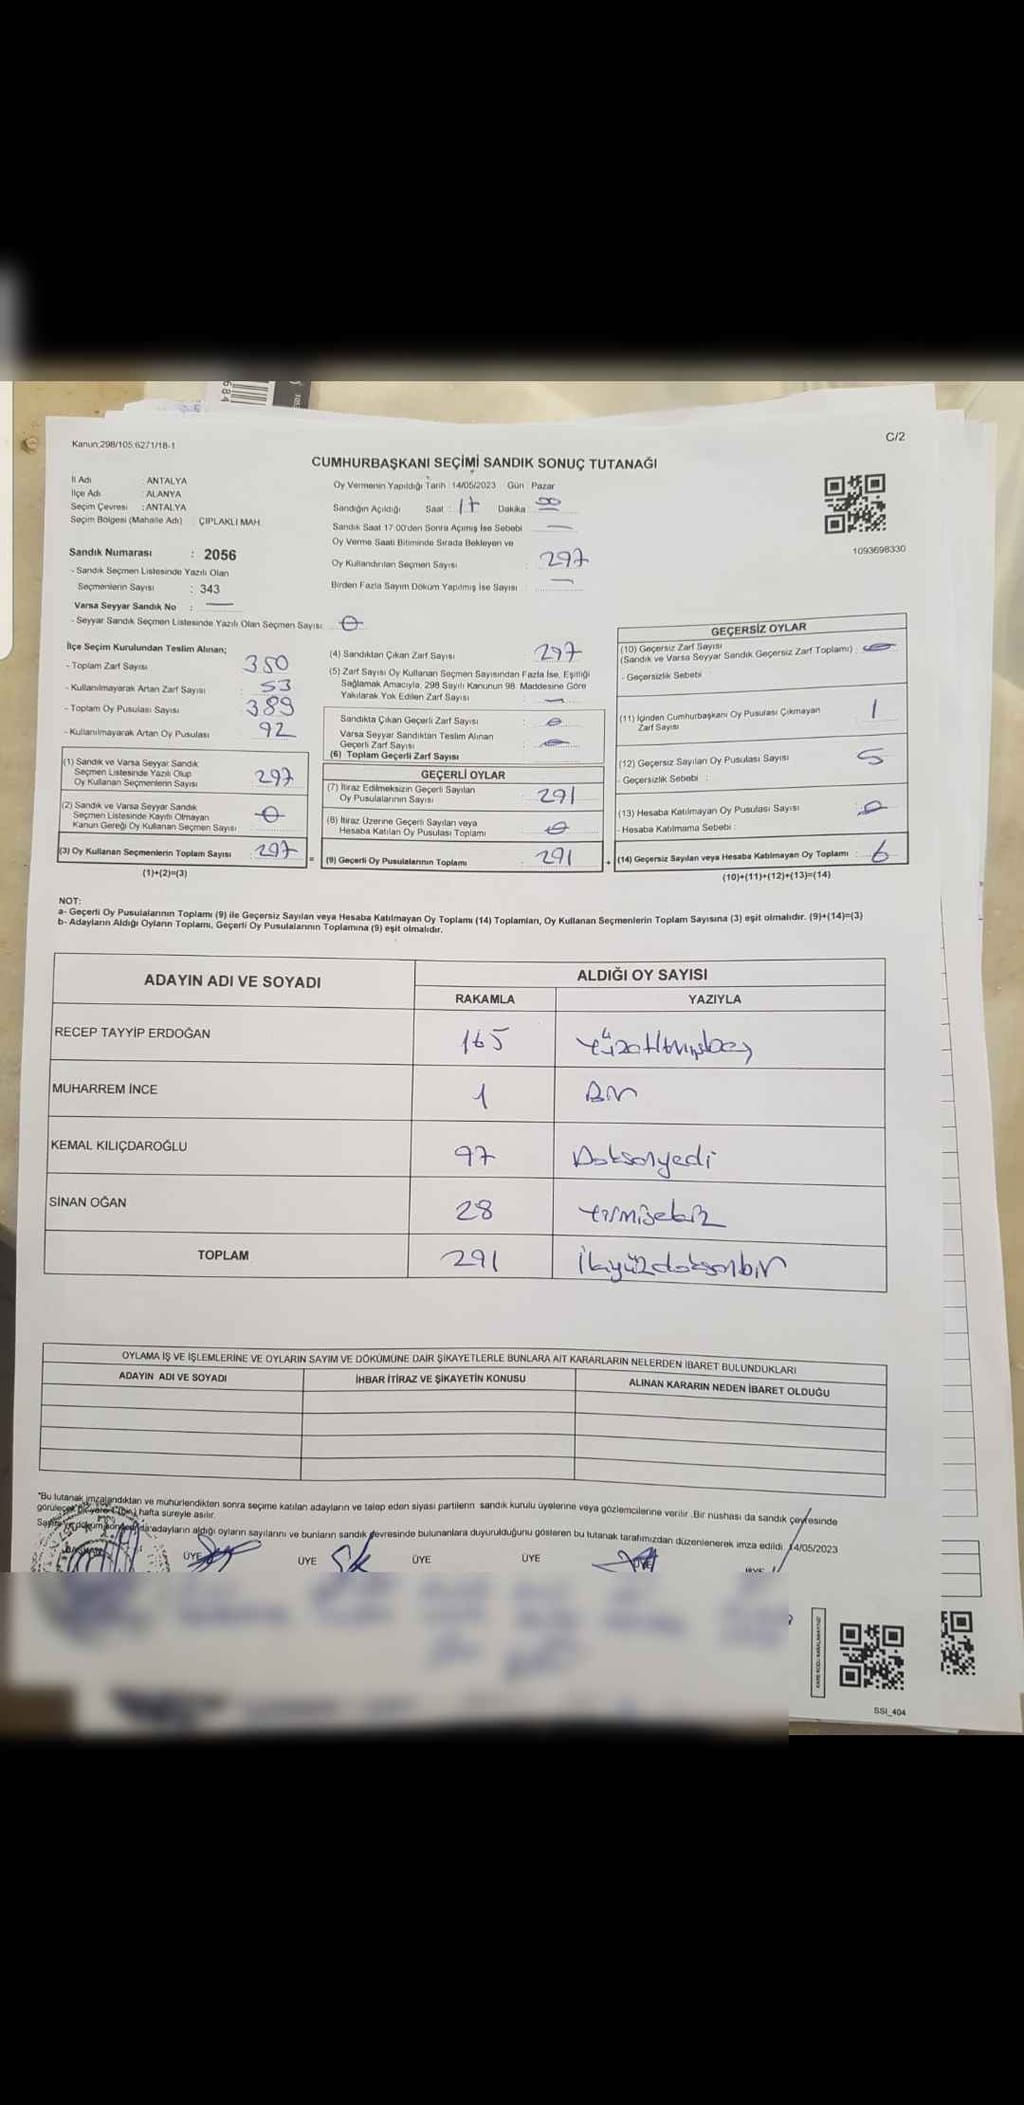 Kanun;298/105;6271/18-1
C/2
CUMHURBAŞKANI SEÇİMİ SANDIK SONUÇ TUTANAĞI
İl Adı : ANTALYA
İlçe Adı : ALANYA
Seçim Çevresi : ANTALYA
Seçim Bölgesi (Mahalle Adı) ÇIPLAKLI MAH.
Sandık Numarası : 2056
- Sandık Seçmen Listesinde Yazılı Olan
Seçmenlerin Sayısı : 343
Varsa Seyyar Sandık No : —
- Seyyar Sandık Seçmen Listesinde Yazılı Olan Seçmen Sayısı 0
Oy Vermenin Yapıldığı Tarih : 14/05/2023 Gün : Pazar
Sandığın Açıldığı Saat : 17 Dakika 00
Sandık Saat 17:00'den Sonra Açılmış İse Sebebi —
Oy Verme Saati Bitiminde Sırada Bekleyen ve
Oy Kullandırılan Seçmen Sayısı : 297
Birden Fazla Sayım Döküm Yapılmış İse Sayısı : —
1093698330
İlçe Seçim Kurulundan Teslim Alınan;
- Toplam Zarf Sayısı 350
- Kullanılmayarak Artan Zarf Sayısı : 53
- Toplam Oy Pusulası Sayısı : 389
- Kullanılmayarak Artan Oy Pusulası 92
(1) Sandık ve Varsa Seyyar Sandık
Seçmen Listesinde Yazılı Olup
Oy Kullanan Seçmenlerin Sayısı 297
(2) Sandık ve Varsa Seyyar Sandık
Seçmen Listesinde Kayıtlı Olmayan
Kanun Gereği Oy Kullanan Seçmen Sayısı 0
(3) Oy Kullanan Seçmenlerin Toplam Sayısı : 297
(1)+(2)=(3)
(4) Sandıktan Çıkan Zarf Sayısı 297
(5) Zarf Sayısı Oy Kullanan Seçmen Sayısından Fazla İse, Eşitliği
Sağlamak Amacıyla, 298 Sayılı Kanunun 98. Maddesine Göre
Yakılarak Yok Edilen Zarf Sayısı : —
Sandıkta Çıkan Geçerli Zarf Sayısı : 0
Varsa Seyyar Sandıktan Teslim Alınan
Geçerli Zarf Sayısı : 0
(6) Toplam Geçerli Zarf Sayısı
GEÇERLİ OYLAR
(7) İtiraz Edilmeksizin Geçerli Sayılan
Oy Pusulalarının Sayısı : 291
(8) İtiraz Üzerine Geçerli Sayılan veya
Hesaba Katılan Oy Pusulası Toplamı : 0
= (9) Geçerli Oy Pusulalarının Toplamı : 291
GEÇERSİZ OYLAR
(10) Geçersiz Zarf Sayısı
(Sandık ve Varsa Seyyar Sandık Geçersiz Zarf Toplamı) : 0
- Geçersizlik Sebebi :
(11) İçinden Cumhurbaşkanı Oy Pusulası Çıkmayan
Zarf Sayısı 1
(12) Geçersiz Sayılan Oy Pusulası Sayısı : 5
- Geçersizlik Sebebi :
(13) Hesaba Katılmayan Oy Pusulası Sayısı : 0
- Hesaba Katılmama Sebebi :
+ (14) Geçersiz Sayılan veya Hesaba Katılmayan Oy Toplamı : 6
(10)+(11)+(12)+(13)=(14)
NOT:
a- Geçerli Oy Pusulalarının Toplamı (9) ile Geçersiz Sayılan veya Hesaba Katılmayan Oy Toplamı (14) Toplamları, Oy Kullanan Seçmenlerin Toplam Sayısına (3) eşit olmalıdır. (9)+(14)=(3)
b- Adayların Aldığı Oyların Toplamı, Geçerli Oy Pusulalarının Toplamına (9) eşit olmalıdır.
ADAYIN ADI VE SOYADI ALDIĞI OY SAYISI
RAKAMLA YAZIYLA
RECEP TAYYİP ERDOĞAN 165 Yüzaltmışbeş
MUHARREM İNCE 1 Bir
KEMAL KILIÇDAROĞLU 97 Doksanyedi
SİNAN OĞAN 28 Yirmisekiz
TOPLAM 291 İkiyüzdoksanbir
OYLAMA İŞ VE İŞLEMLERİNE VE OYLARIN SAYIM VE DÖKÜMÜNE DAİR ŞİKAYETLERLE BUNLARA AİT KARARLARIN NELERDEN İBARET BULUNDUKLARI
ADAYIN ADI VE SOYADI İHBAR İTİRAZ VE ŞİKAYETİN KONUSU ALINAN KARARIN NEDEN İBARET OLDUĞU
*Bu tutanak imzalandıktan ve mühürlendikten sonra seçime katılan adayların ve talep eden siyasi partilerin sandık kurulu üyelerine veya gözlemcilerine verilir .Bir nüshası da sandık çevresinde
görülecek bir yere 1 (bir) hafta süreyle asılır.
adayların aldığı oyların sayılarını ve bunların sandık çevresinde bulunanlara duyurulduğunu gösteren bu tutanak tarafımızdan düzenlenerek imza edildi. 14/05/2023
BAŞKAN ÜYE ÜYE ÜYE ÜYE
SSİ_404